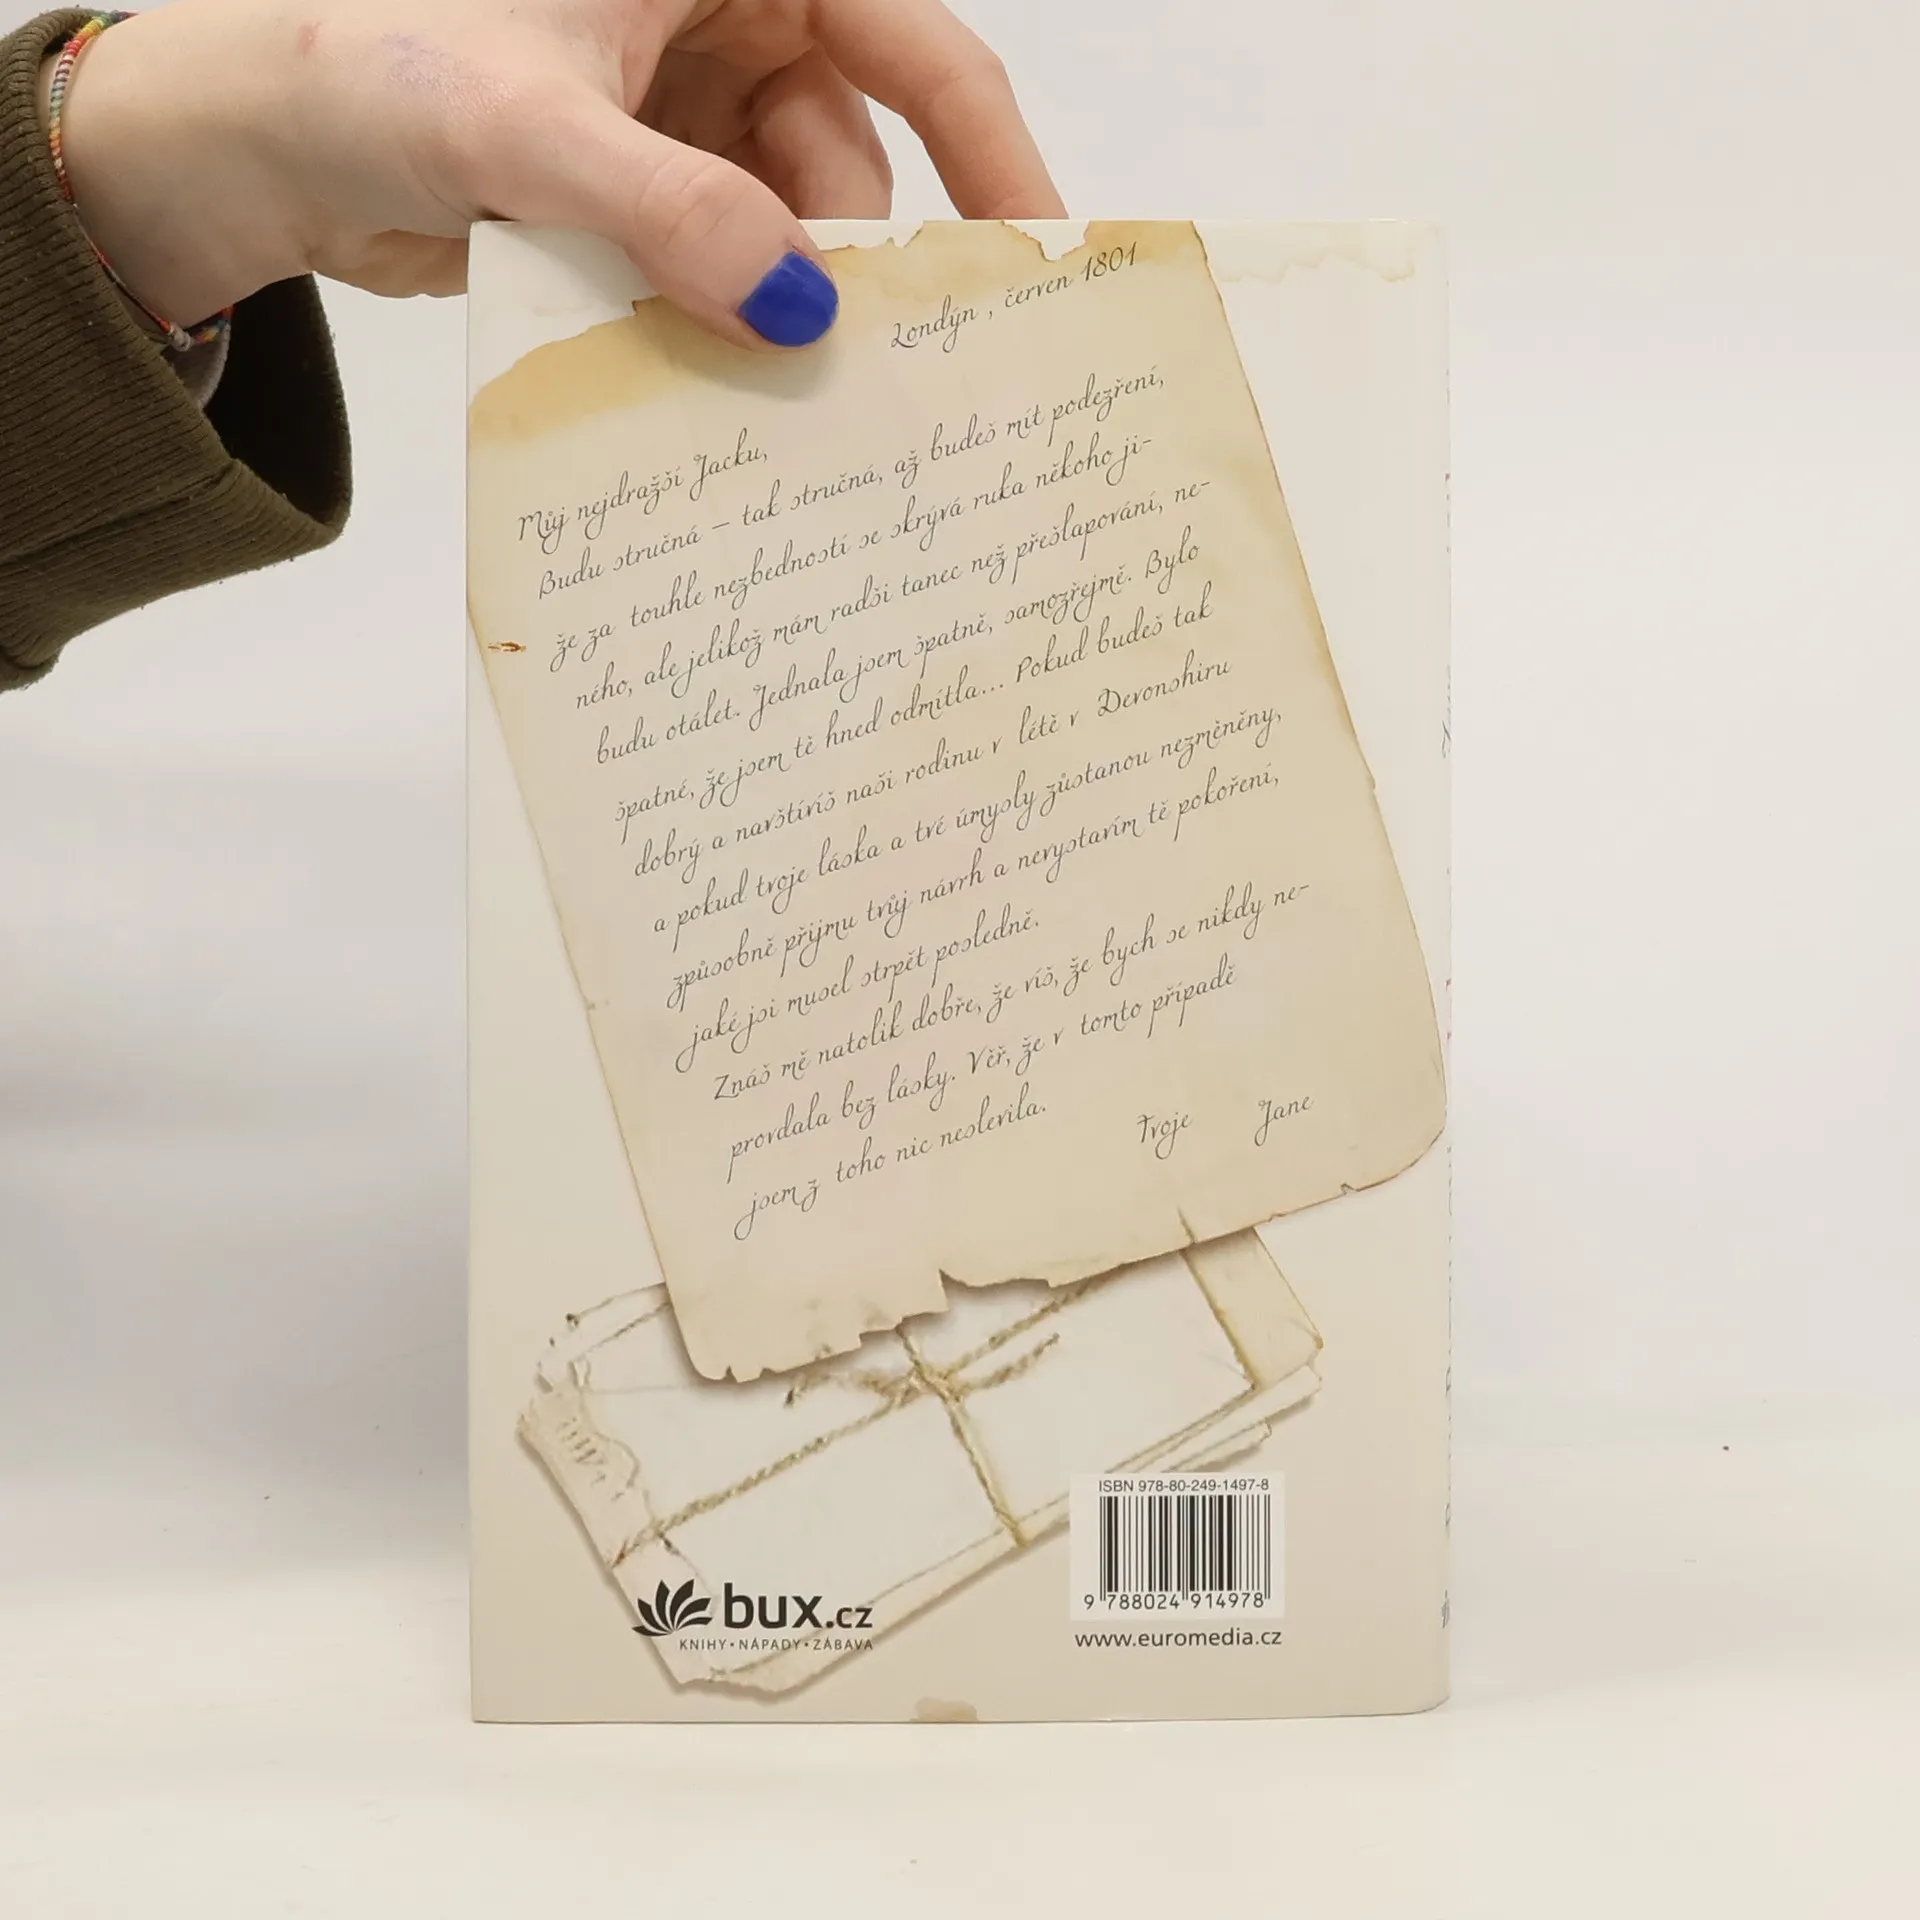 Londýn , červen 1801
Můj nejdražší Jacku,
Budu stručná – tak stručná, až budeš mít podezření,
že za touhle nezbedností se skrývá ruka někoho ji-
ného, ale jelikož mám radši tanec než přešlapování, ne-
budu otálet. Jednala jsem špatně, samozřejmě. Bylo
špatné, že jsem tě hned odmítla... Pokud budeš tak
dobrý a navštívíš naši rodinu v létě v Devonshiru
a pokud tvoje láska a tvé úmysly zůstanou nezměněny,
způsobně přijmu tvůj návrh a nevystavím tě pokoření,
jaké jsi musel strpět posledně.
Znáš mě natolik dobře, že víš, že bych se nikdy ne-
provdala bez lásky. Věř, že v tomto případě
jsem z toho nic neslevila.
Tvoje Jane
ISBN 978-80-249-1497-8
9 788024 914978
bux.cz
KNIHY•NÁPADY•ZÁBAVA
www.euromedia.cz